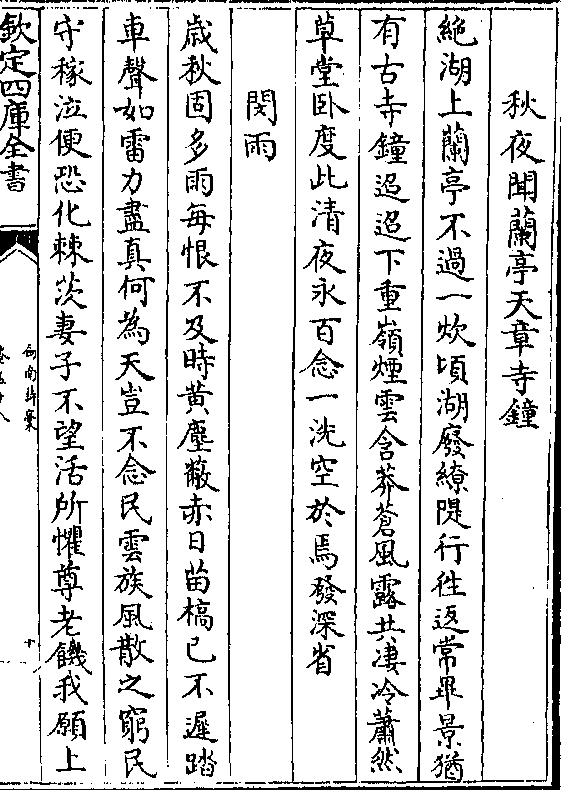 秋夜聞蘭亭天章寺鐘
絶湖上蘭亭不過一炊頃湖廢繚隄行徃返常畢景猶
有古寺鐘迢迢下重嶺煙雲含莽蒼風露共凄冷蕭然
草堂卧度此清夜永百念一洗空於焉發深省
閔雨
歳秋固多雨每恨不及時黄塵蔽赤日苗槁已不遲踏
車聲如雷力盡真何為天豈不念民雲族風散之窮民
守稼泣便恐化棘茨妻子不望活所懼尊老饑我願上
欽定四庫全書
劍南詩稾
卷五十八
十